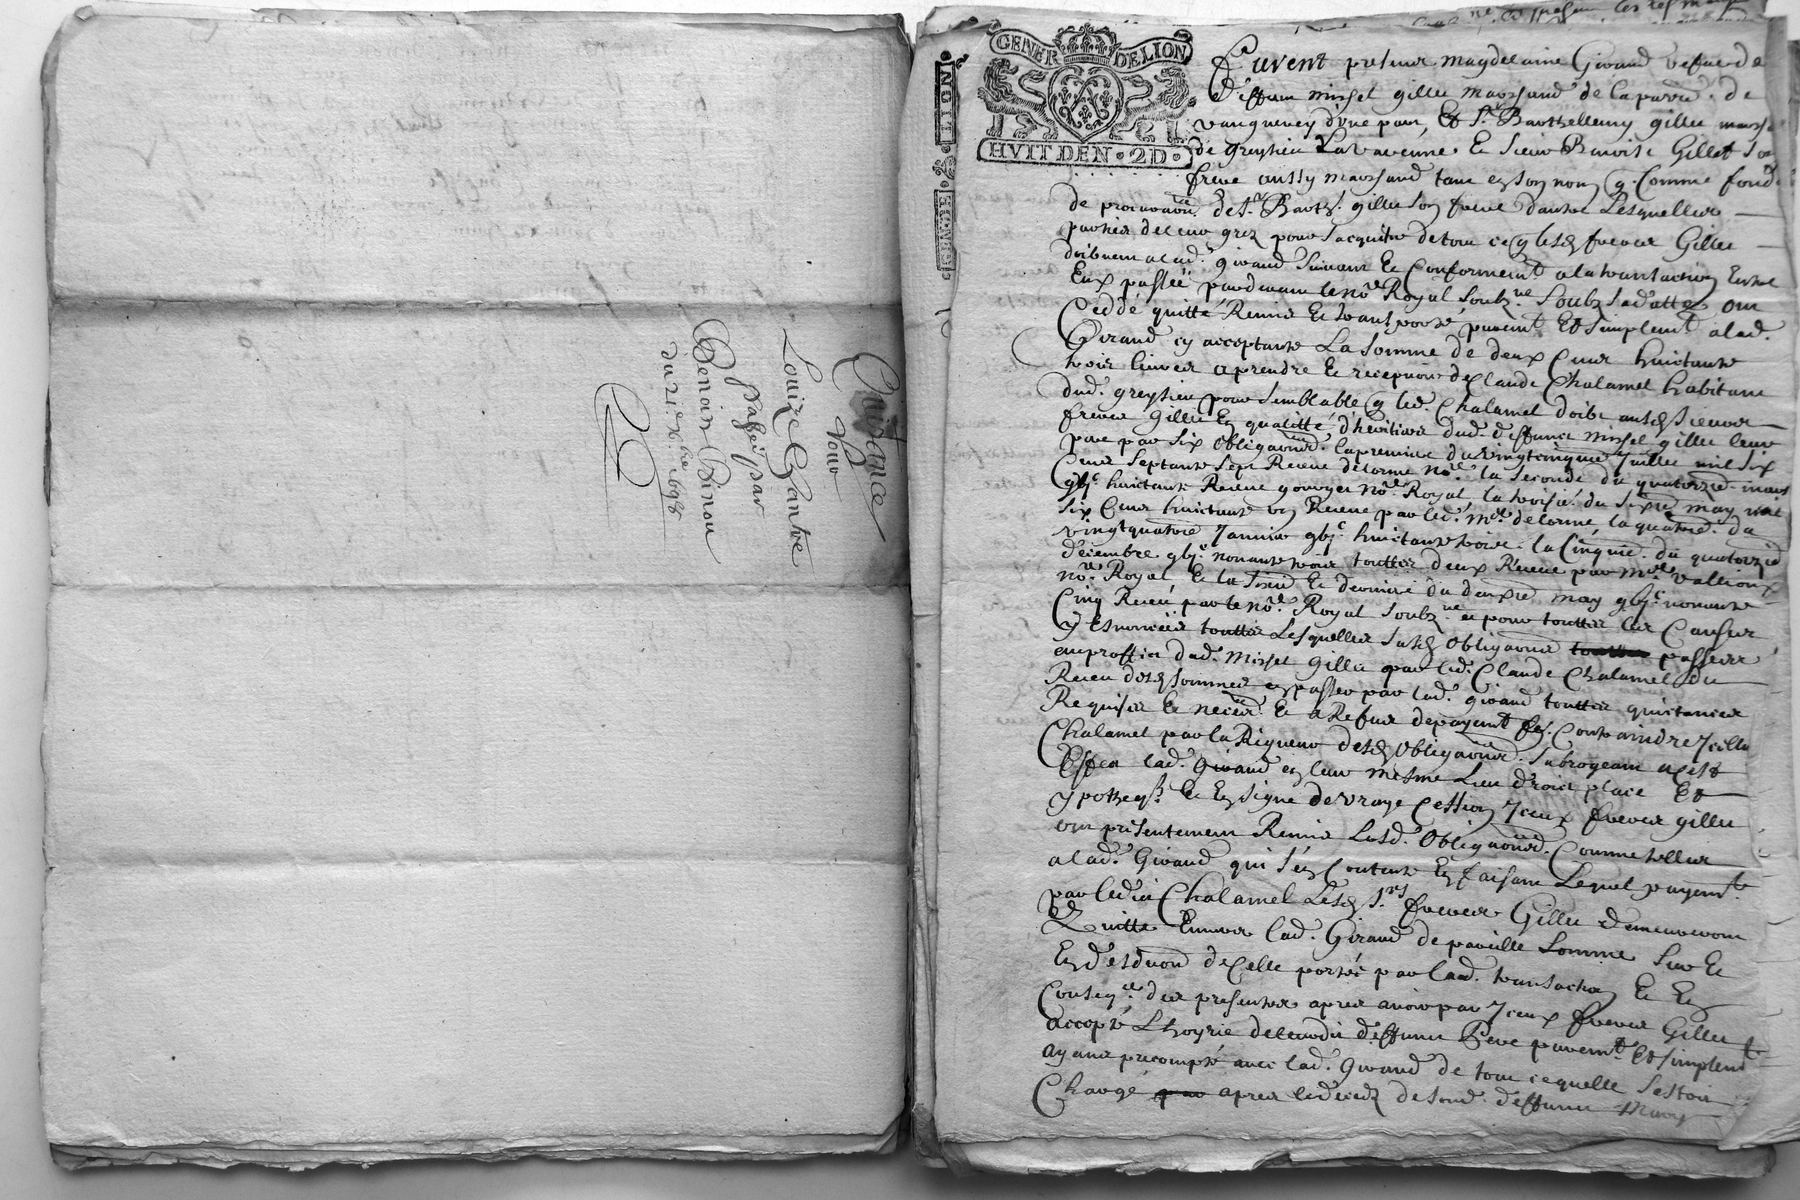 Quittance
pour
Louize Chantre
passé par
Benoist Pinou
du 21e 9bre 1698
GENER DE LION
HVIT DEN · 2D ·
GEN DE LION
Furent presens magdelaine Giraud vefve de
deffunt missel gillet marchand de la parrse de
vaugneray d'vne part, Et Sr Barthellemy gillet march
de greysieu La Varenne Et Sieur Benoist Gillet son
frere aussy marchand tant en son nom q comme fondé
de procuraon de Sr Barth. gillet son frere d'autre Lesquelles
parties de leur grez pour s'acquitter de tout ce q lesd freres Gillet
doibuent a lad. giraud suivant Et Conformemt a la transaction Entre
Eux passée pardevant le nore Royal soubz.ne soubz sa datte, ont
Ceddé quitté Remis Et transporté purement Et simplemt a lad.
Giraud cy acceptante La somme de deux Cents huictante
trois livres a prendre Et recepvoir de Claude Chalamel habitant
dud. greysieu pour semblable q led. Chalamel doibt ausd sieurs
freres Gillet En qualitté d'heritiers dud. deffunct missel gillet leur
pere par six obligaons. la premiere du vingtcinqme Juillet mil six
Cents septante sept Receue delorme nore la seconde du quatorze mars
gbjc huictante Receue gonoyer nore Royal, la troisie du sixme may mil
six Cents huictante vn Receue par led. Me delorme la quatrie. du
vingtquatrie Janvier gbjc huictante trois. la Cinquie. du quatorzie
decembre gbjc nonante trois touttes deux Receue par Me Vallioux
nore Royal, Et la sixie Et derniere du deuxie may gbjc nonante
Cinq Receu par le nore Royal soubz.ne et pour touttes les Causes
y Esnoncées touttes Lesquelles susd obligaons passées
au proffict dud. missel gillet par led. Claude Chalamel du
Receu desd sommes en passer par lad. giraud touttes quictances
Requises Et necess. Et a Refus de payemt fe. Contraindre Icelluy
Chalamel par la Rigueur desd obligaons. subrogeant a cest
Effect lad. Giraud en leur mesme Lieu droict place Et
ypotheq. Et En signe de vraye Cession Iceux freres gillet
ont presentement Remis Lesd. obligaons. Comme telles
a lad. Giraud qui s'en Contente En faisant Lequel payemt
par ledit Chalamel Lesd Srs freres Gillet demeureront
Quitte Envers lad. Giraud de pareille somme sur Et
En desduon de Celle portée par lad. transaction Et En
Conseqce des presentes apres avoir par Iceux freres Gillet
accepté L'hoyrie de leurdit deffunct Pere purement Et simplemt
ayant precompté avec lad. Giraud de tout ce quelle s'estoit
Chargé apres le deced de sond. deffunct Mary